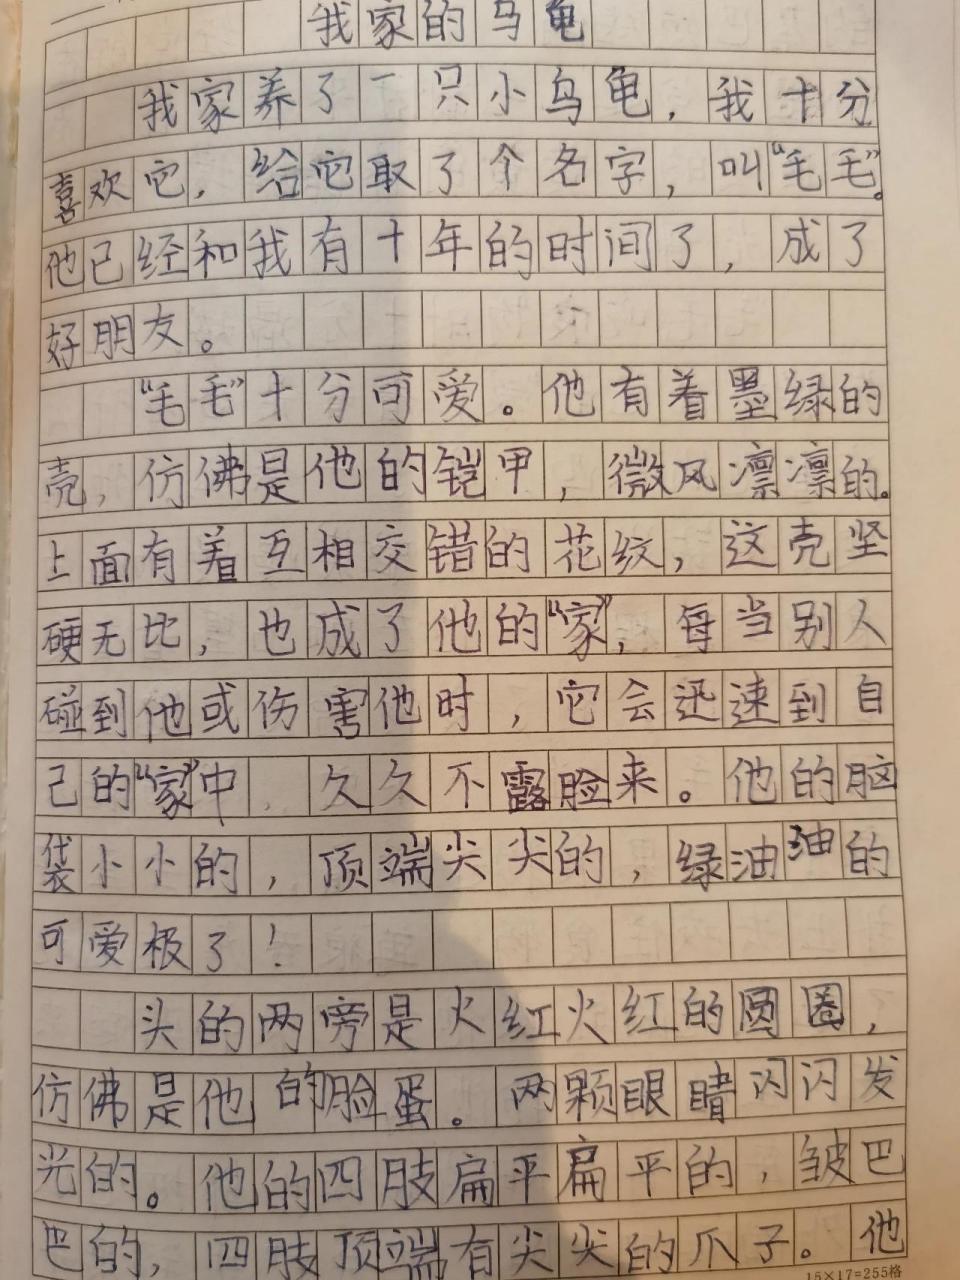 我家的乌龟
我家养了一只小乌龟，我十分
喜欢它，给它取了个名字，叫“毛毛”。
他已经和我有十年的时间了，成了
好朋友。
“毛毛”十分可爱。他有着墨绿的
壳，仿佛是他的铠甲，微风凛凛的。
上面有着互相交错的花纹，这壳坚
硬无比，也成了他的“家”，每当别人
碰到他或伤害他时，它会迅速到自
己的“家”中，久久不露脸来。他的脑
袋小小的，顶端尖尖的，绿油油的
可爱极了！
头的两旁是火红火红的圆圈，
仿佛是他的脸蛋。两颗眼睛闪闪发
光的。他的四肢扁平扁平的，皱巴
巴的，四肢顶端有尖尖的爪子。他
15×17=255格